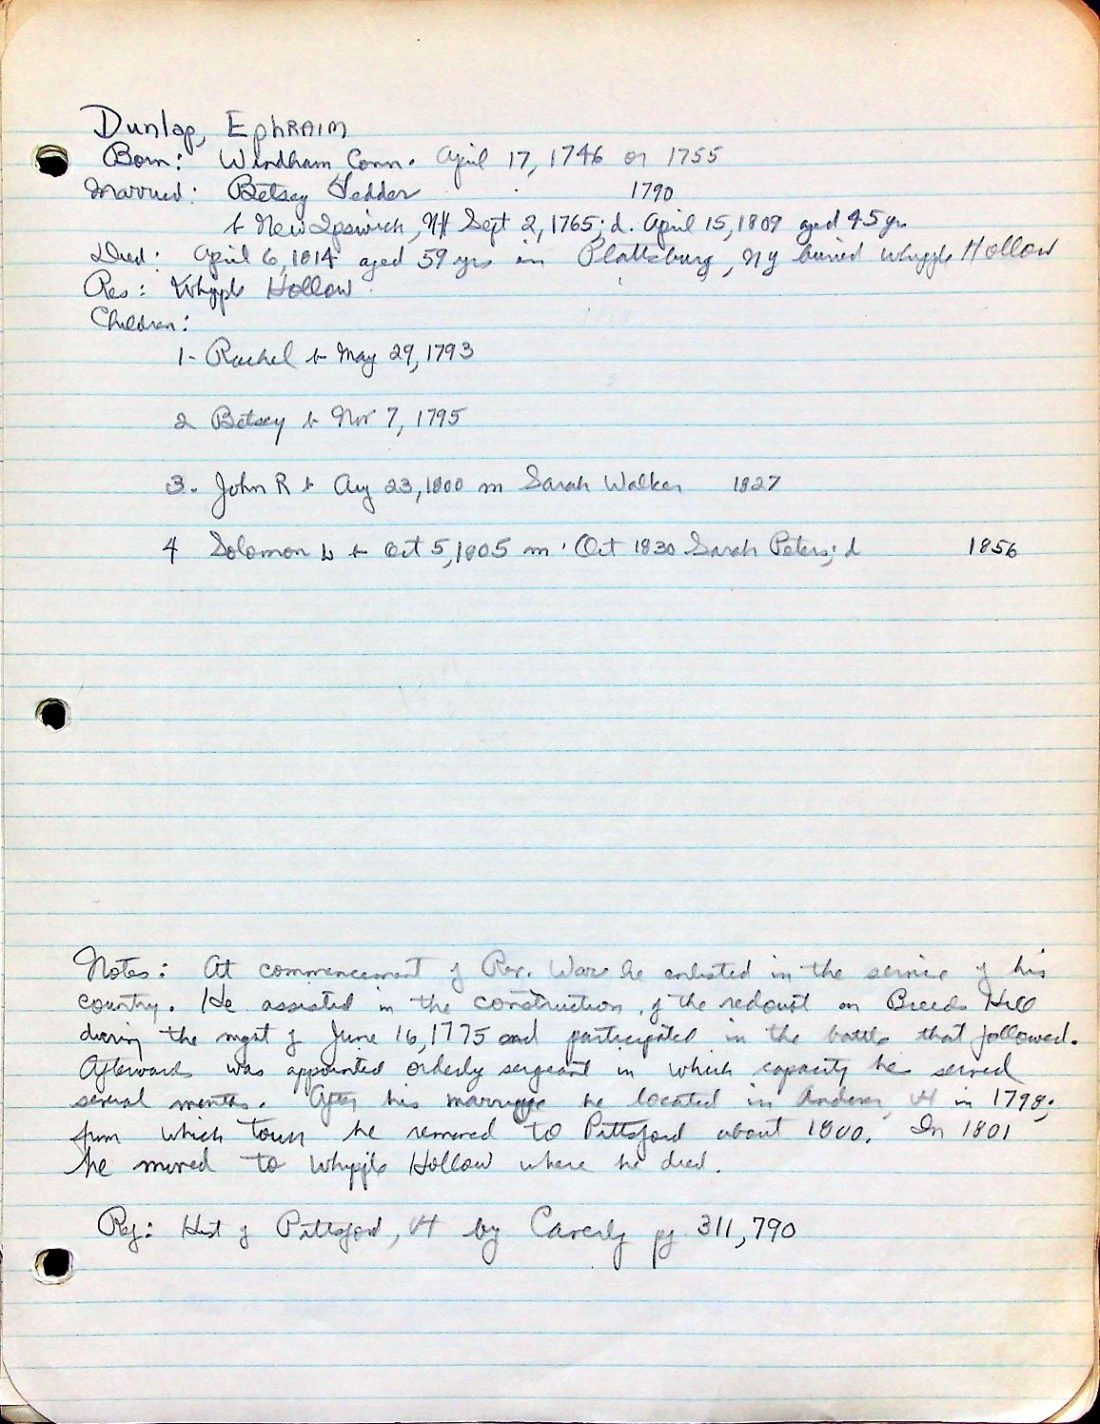 Dunlap, Ephraim
Born: Windham Conn. April 17, 1746 or 1755
Married: Betsey Tedder 1790
b New Ipswich, NH Sept 2, 1765; d. April 15, 1809 aged 45 yr.
Died: April 6, 1814 aged 59 yrs in Plattsburg, NY buried Whipple Hollow
Res: Whipple Hollow
Children:
1- Rachel b May 29, 1793
2 Betsey b Nov 7, 1795
3. John R b Aug 23, 1800 m Sarah Walker 1827
4 Solomon b Oct 5, 1805 m. Oct 1830 Sarah Peters; d 1856
Notes: At commencement of Rev. Ware he enlisted in the service of his
country. He assisted in the construction of the redoubt on Breeds Hill
during the night of June 16, 1775 and participated in the battle that followed.
Afterwards was appointed orderly sergeant in which capacity he served
several months. After his marriage he located in Andover, Vt in 1798;
from which town he removed to Pittsford about 1800. In 1801
he moved to Whipple Hollow where he died.
Ref: Hist of Pittsford, Vt by Caverly pg 311, 790